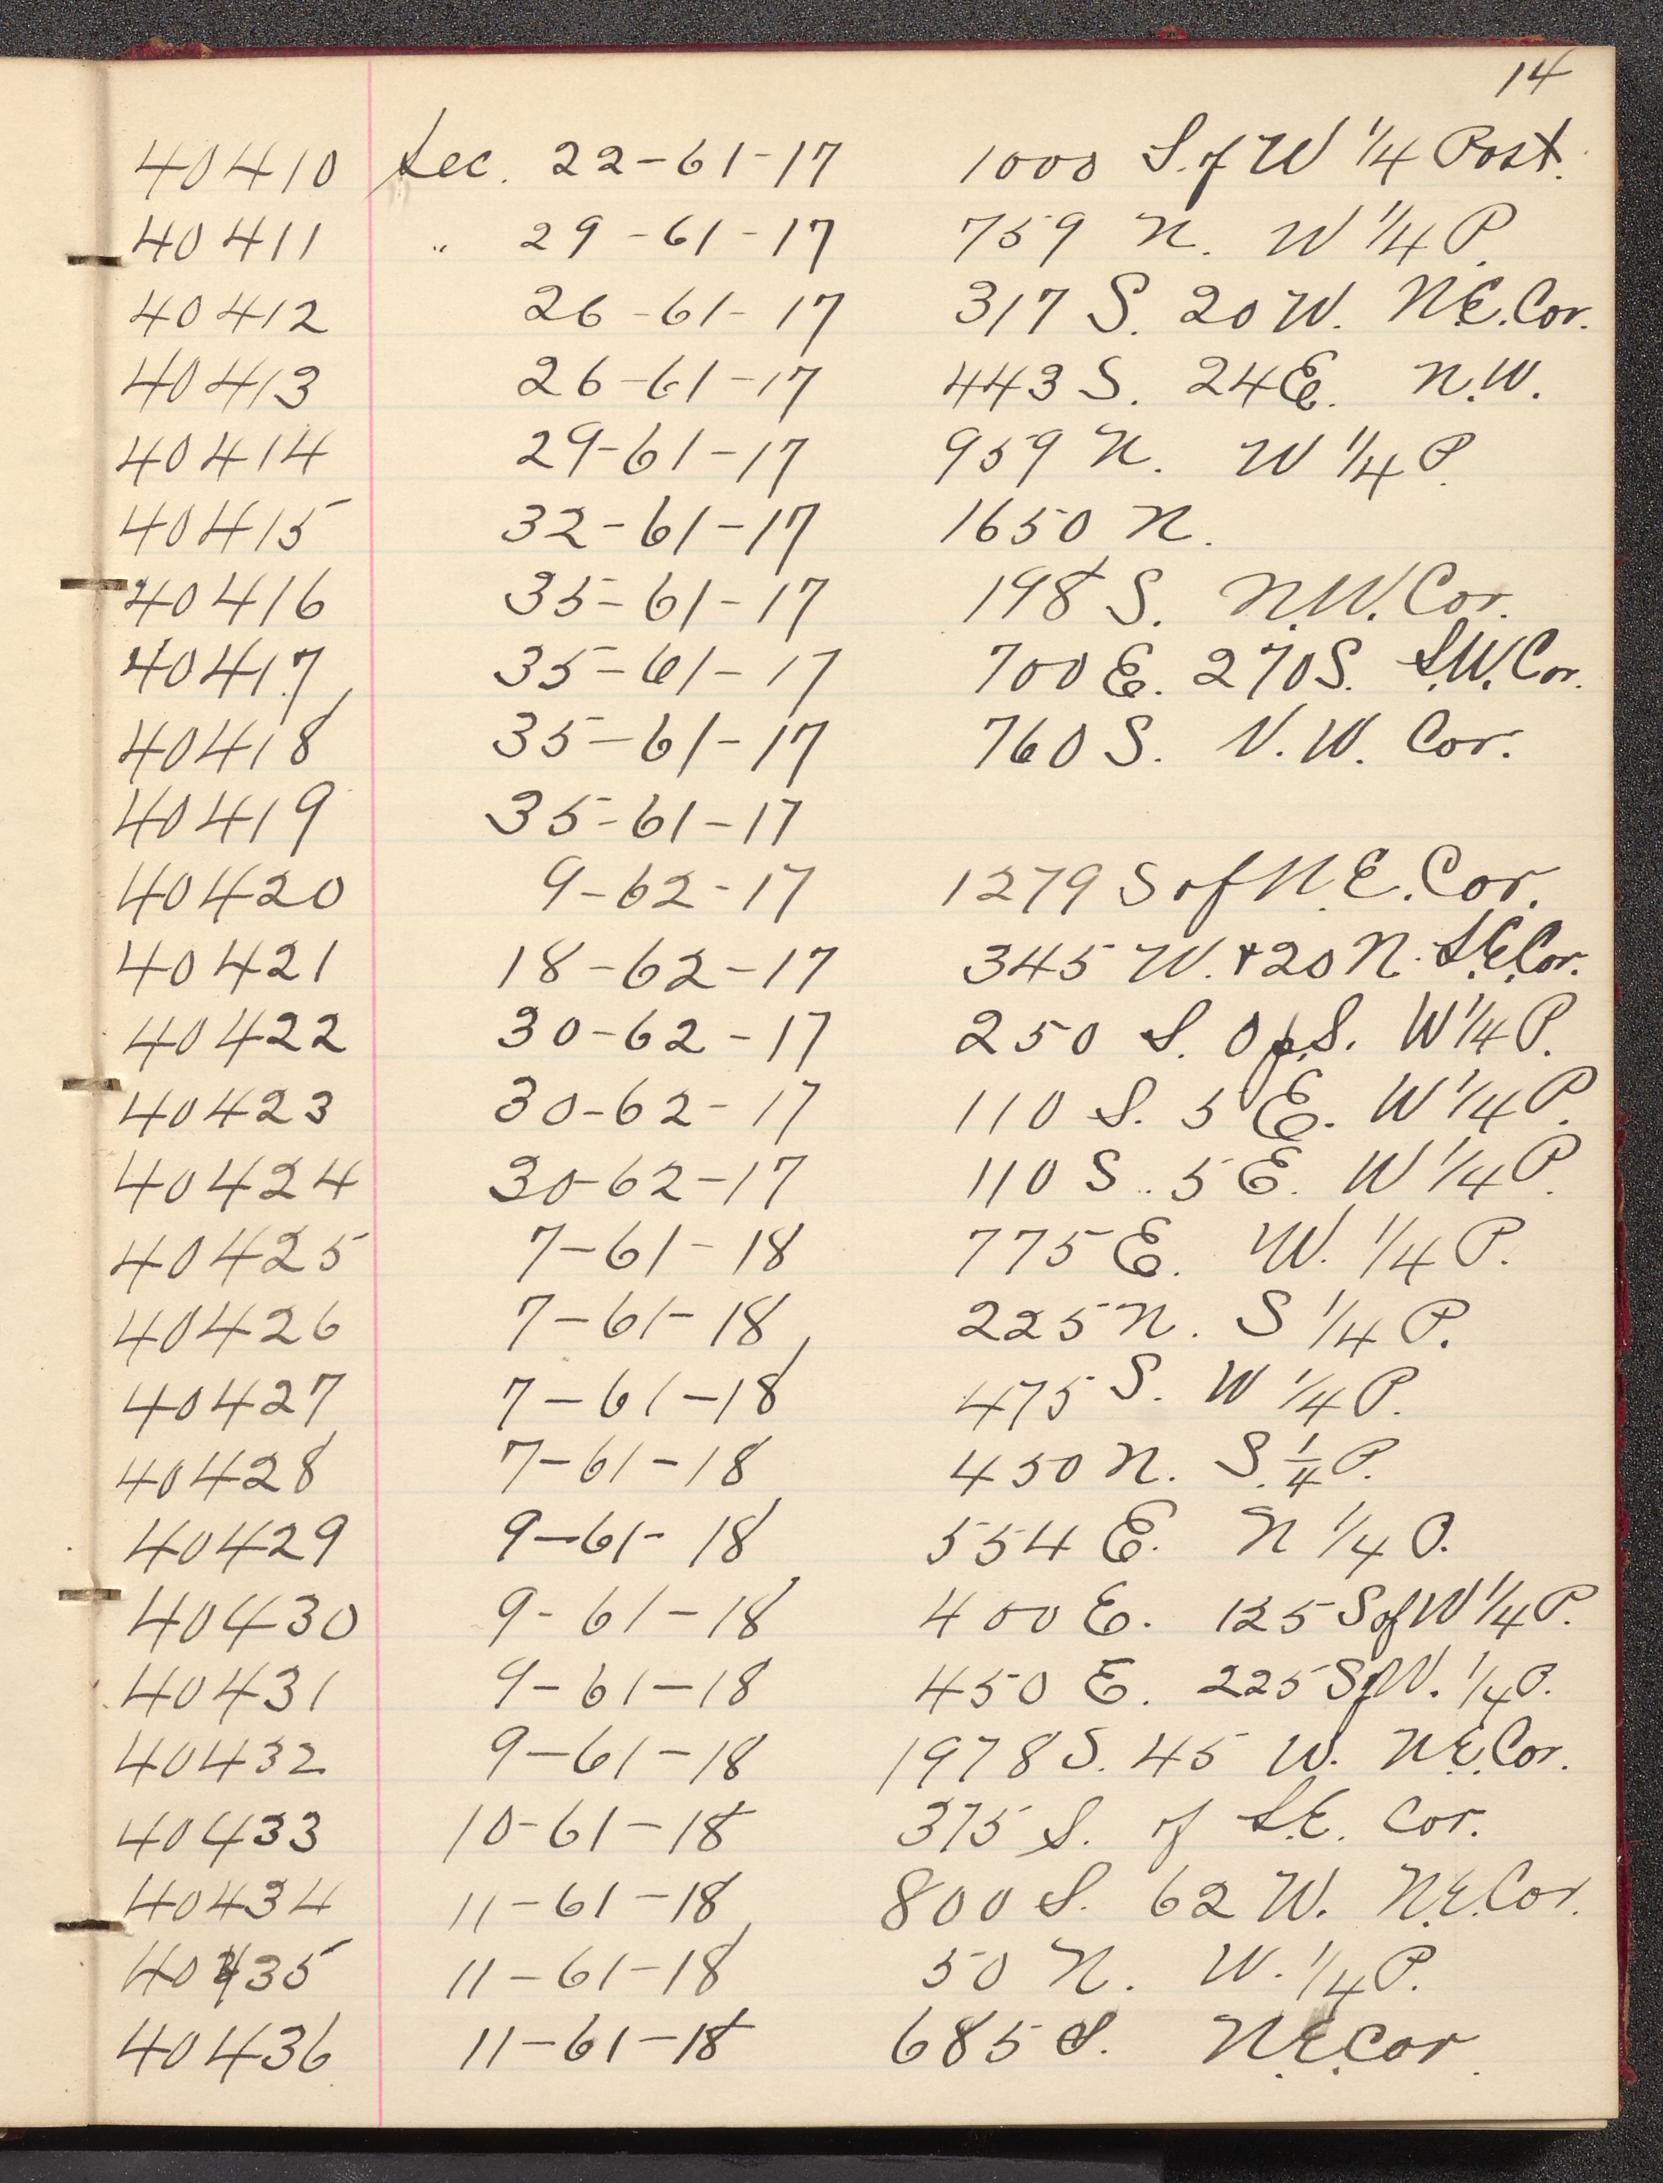 14
40410 Sec. 22-61-17 1000 S. of W 1/4 Post.
40411 " 29-61-17 759 N. W 1/4 P.
40412 26-61-17 317 S. 20 W. N.E. Cor.
40413 26-61-17 443 S. 24 E. N.W.
40414 29-61-17 959 N. W 1/4 P.
40415 32-61-17 1650 N.
40416 35-61-17 198 S. N.W. Cor.
40417 35-61-17 700 E. 270 S. S.W. Cor.
40418 35-61-17 760 S. N.W. Cor.
40419 35-61-17
40420 9-62-17 1279 S of N.E. Cor.
40421 18-62-17 345 W. + 20 N. S.E. Cor.
40422 30-62-17 250 S. 0 p. S. W 1/4 P.
40423 30-62-17 110 S. 5 E. W 1/4 P.
40424 30-62-17 110 S. 5 E. W 1/4 P.
40425 7-61-18 775 E. W. 1/4 P.
40426 7-61-18 225 N. S 1/4 P.
40427 7-61-18 475 S. W 1/4 P.
40428 7-61-18 450 N. S. 1/4 P.
40429 9-61-18 554 E. N 1/4 P.
40430 9-61-18 400 E. 125 S of W 1/4 P.
40431 9-61-18 450 E. 225 S of W. 1/4 P.
40432 9-61-18 1978 S. 45 W. N.E. Cor.
40433 10-61-18 375 S. of S.E. Cor.
40434 11-61-18 800 S. 62 W. N.E. Cor.
40435 11-61-18 50 N. W. 1/4 P.
40436 11-61-18 685 S. N.E. Cor.